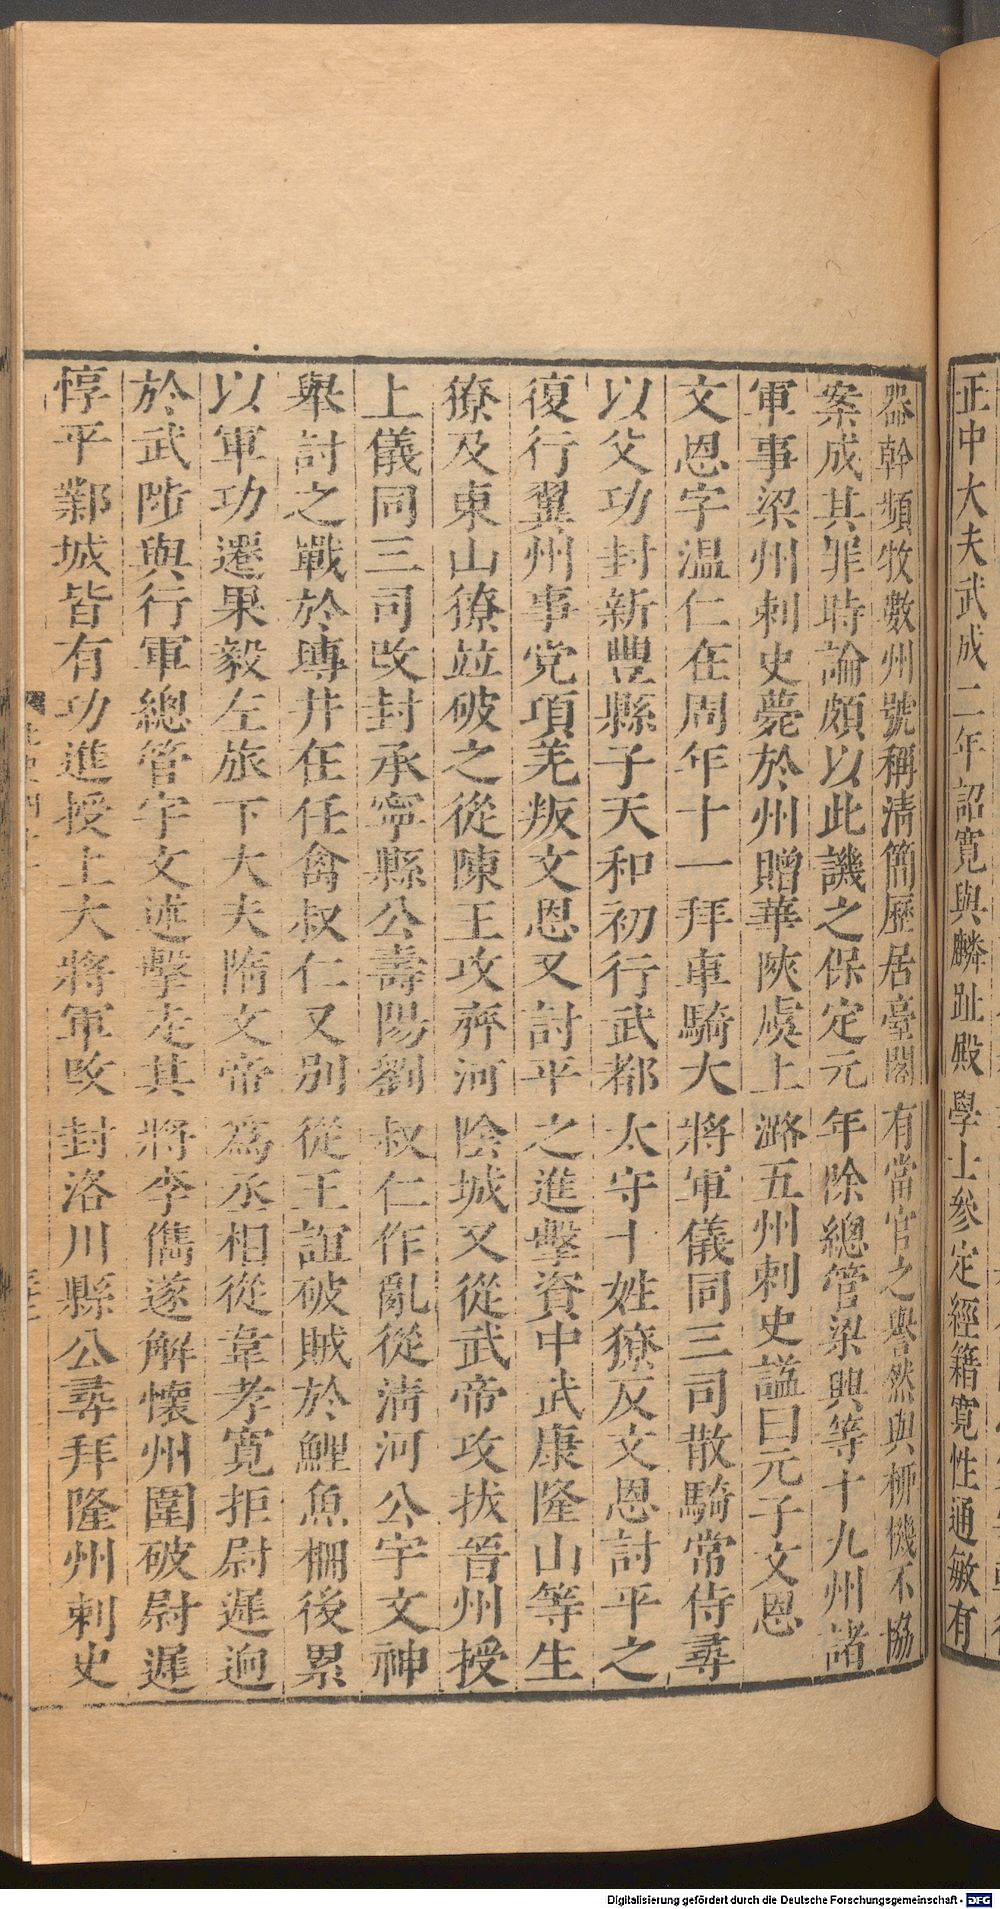 正中大夫武成二年詔寬與麟趾殿學士參定經籍寬性通敏有
器幹頻牧數州號稱清簡歷居臺閣有當官之譽然與柳機不協
案成其罪時論頗以此譏之保定元年除總管梁興等十九州諸
軍事梁州刺史薨於州贈華陝虞上潞五州刺史謚曰元子文恩
文恩字溫仁在周年十一拜車騎大將軍儀同三司散騎常侍尋
以父功封新豐縣子天和初行武都太守十姓獠反文恩討平之
復行翼州事党項羌叛文恩又討平之進擊資中武康隆山等生
獠及東山獠並破之從陳王攻齊河陰城又從武帝攻拔晉州授
上儀同三司改封承寧縣公壽陽劉叔仁作亂從清河公宇文神
舉討之戰於塼井在任禽叔仁又別從王誼破賊於鯉魚柵後累
以軍功遷果毅左旅下大夫隋文帝為丞相從韋孝寬拒尉遲迥
於武陟與行軍總管宇文述擊走其將李儁遂解懷州圍破尉遲
惇平鄴城皆有功進授上大將軍改封洛川縣公尋拜隆州刺史
Digitalisierung gefördert durch die Deutsche Forschungsgemeinschaft - DFG